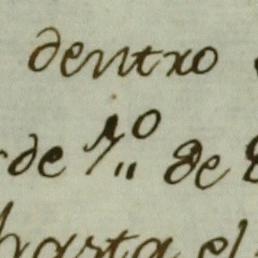 dentro
de 1.º de
hasta el